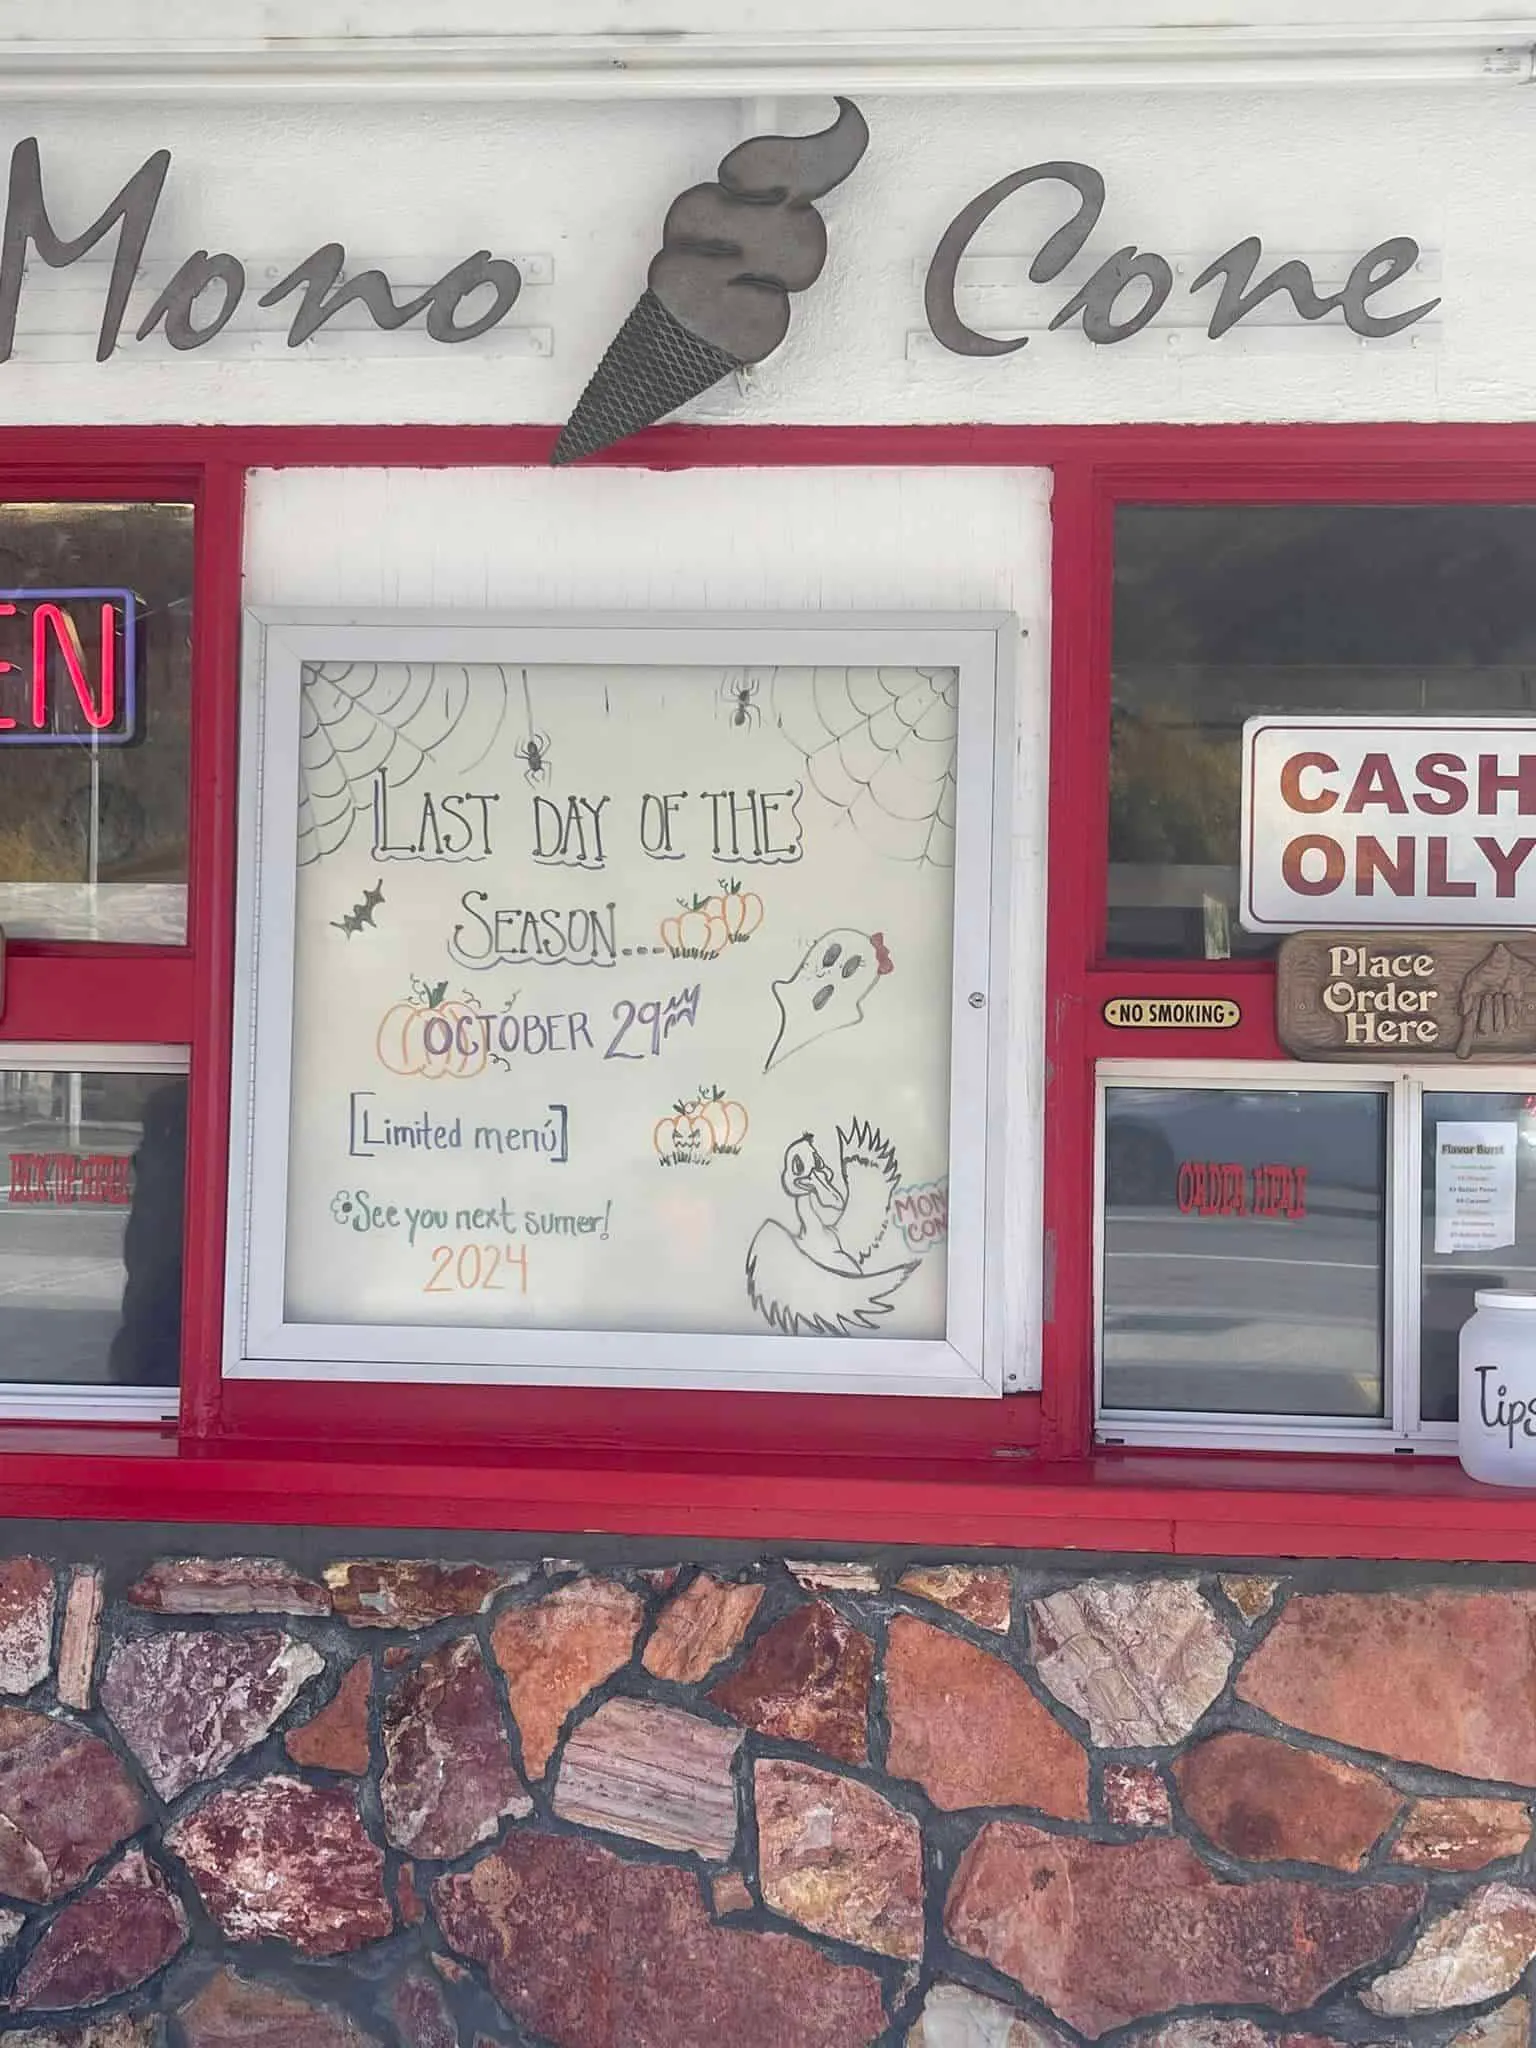 Mono Cone
EN
LAST DAY OF THE
SEASON...
OCTOBER 29TH
[Limited menú]
See you next sumer!
2024
MON
CON
CASH
ONLY
Place
Order
Here
NO SMOKING
PICK UP HERE
ORDER HERE
Flavor Burst
Tips